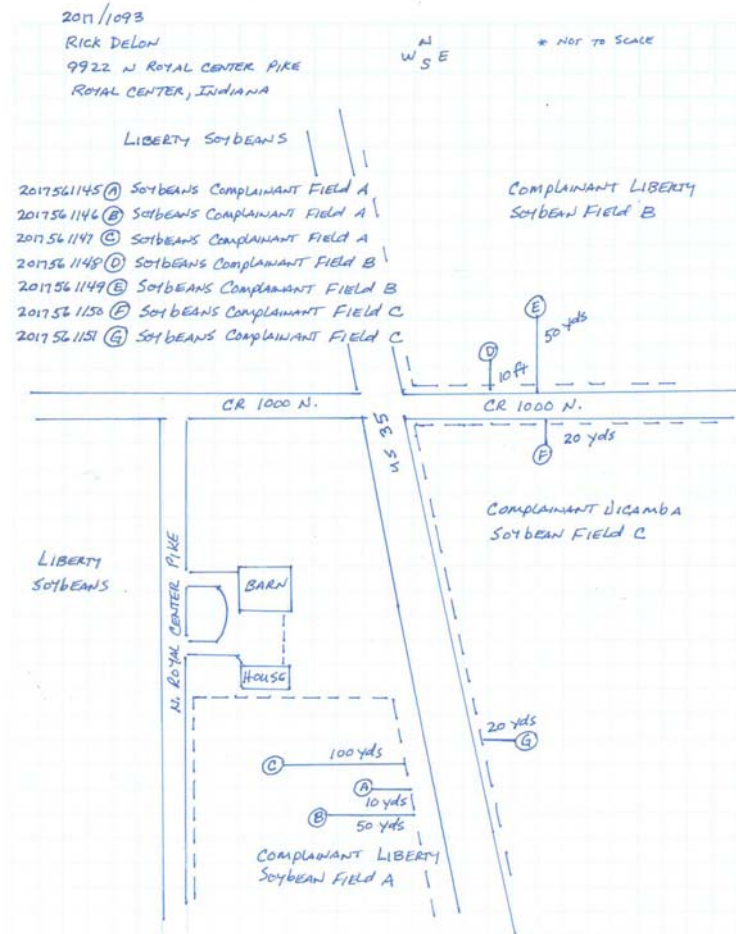 2017/1093
RICK DELON
9922 N ROYAL CENTER PIKE
ROYAL CENTER, INDIANA
N
W E
S
* NOT TO SCALE
LIBERTY SOYBEANS
2017561145 (A) SOYBEANS COMPLAINANT FIELD A
2017561146 (B) SOYBEANS COMPLAINANT FIELD A
2017561147 (C) SOYBEANS COMPLAINANT FIELD A
2017561148 (D) SOYBEANS COMPLAINANT FIELD B
2017561149 (E) SOYBEANS COMPLAINANT FIELD B
2017561150 (F) SOYBEANS COMPLAINANT FIELD C
2017561151 (G) SOYBEANS COMPLAINANT FIELD C
COMPLAINANT LIBERTY
SOYBEAN FIELD B
E
50 yds
D
10 ft
CR 1000 N.
CR 1000 N.
US 35
F
20 yds
COMPLAINANT DICAMBA
SOYBEAN FIELD C
LIBERTY
SOYBEANS
N. ROYAL CENTER PIKE
BARN
HOUSE
20 yds
G
C
100 yds
A
10 yds
B
50 yds
COMPLAINANT LIBERTY
SOYBEAN FIELD A